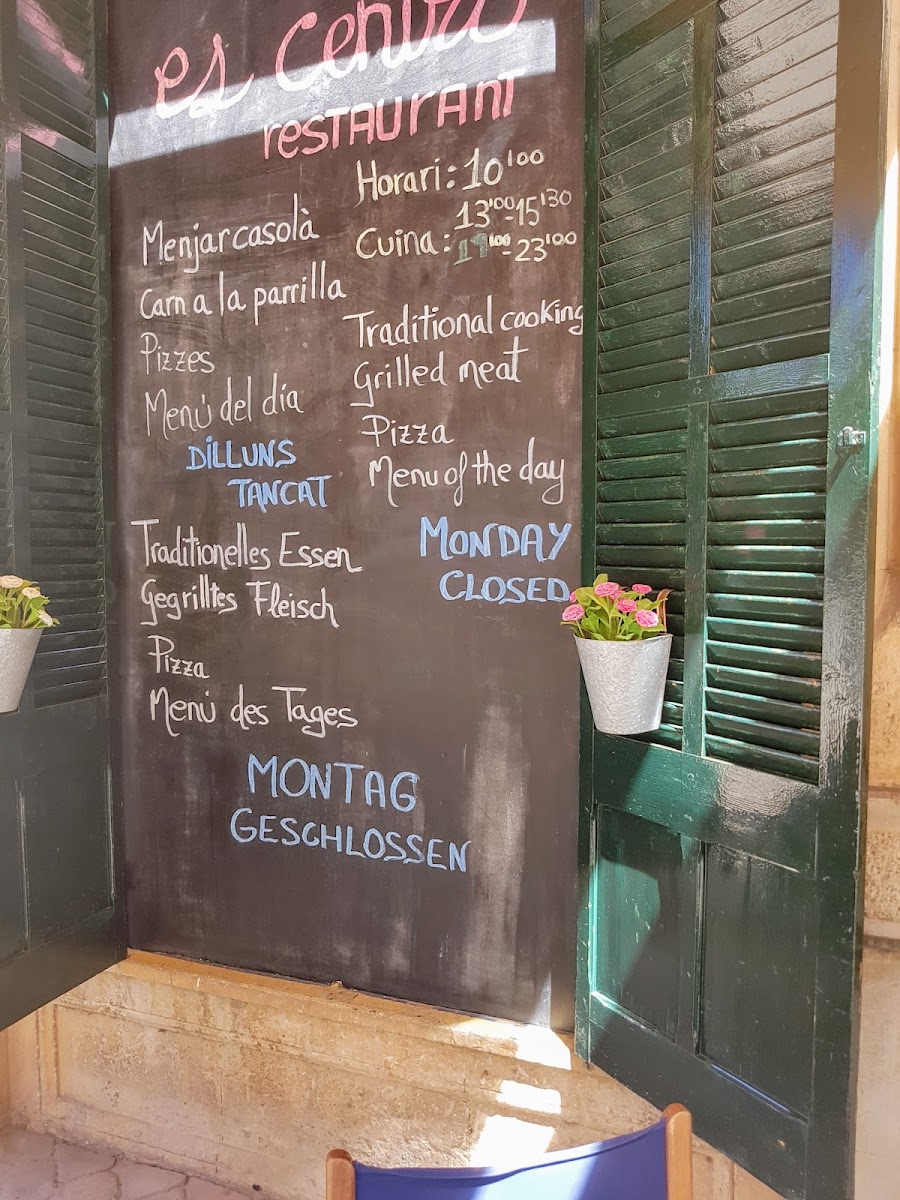 es Centro
restaurant
Horari: 10'00
13'00-15'30
Cuina: 19'00-23'00
Menjar casolà
Carn a la parrilla
Pizzes
Menú del día
DILLUNS
TANCAT
Traditional cooking
Grilled meat
Pizza
Menu of the day
MONDAY
CLOSED
Traditionelles Essen
Gegrilltes Fleisch
Pizza
Menú des Tages
MONTAG
GESCHLOSSEN